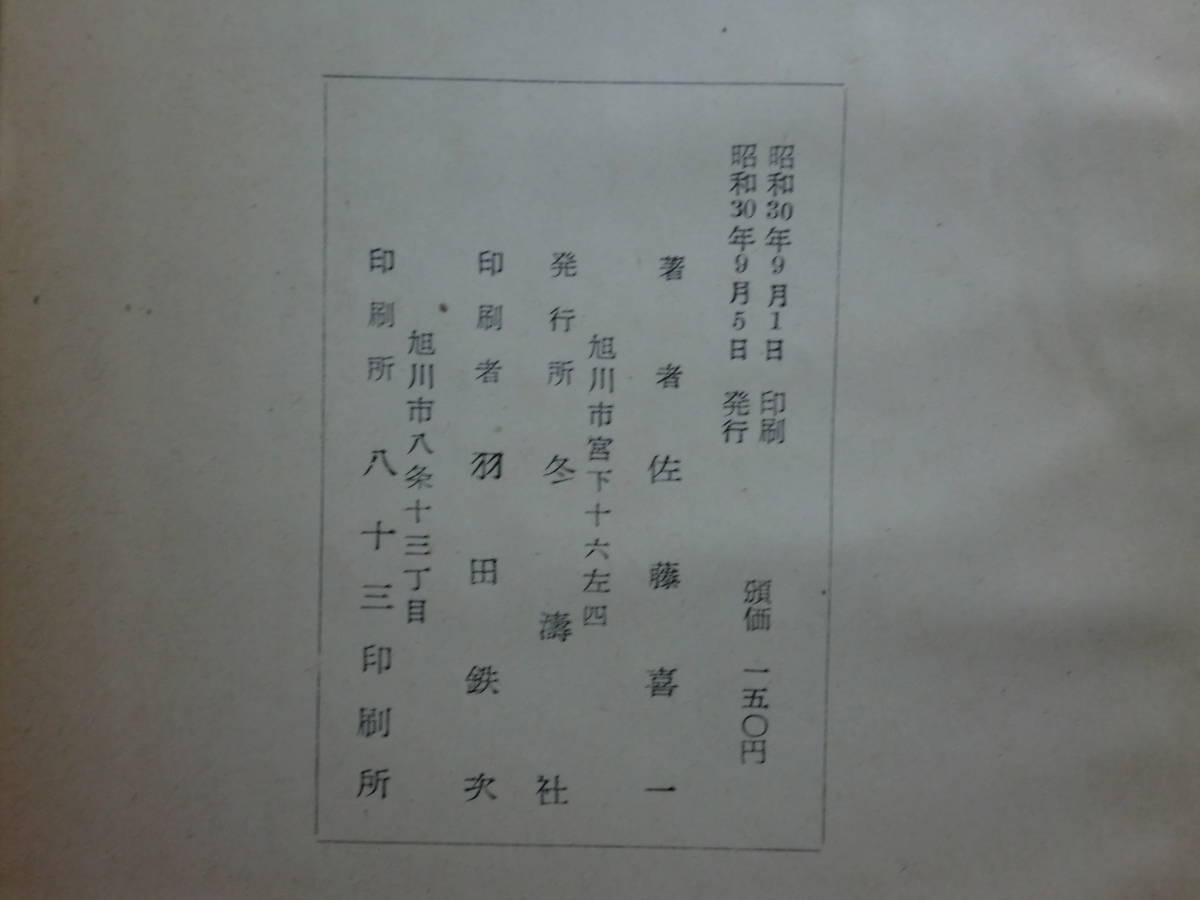 昭和30年9月1日 印刷
昭和30年9月5日 発行
頒価 一五〇円
著者 佐藤喜一
旭川市宮下十六左四
発行所 冬濤社
印刷者 羽田鉄次
旭川市八条十三丁目
印刷所 八十三印刷所